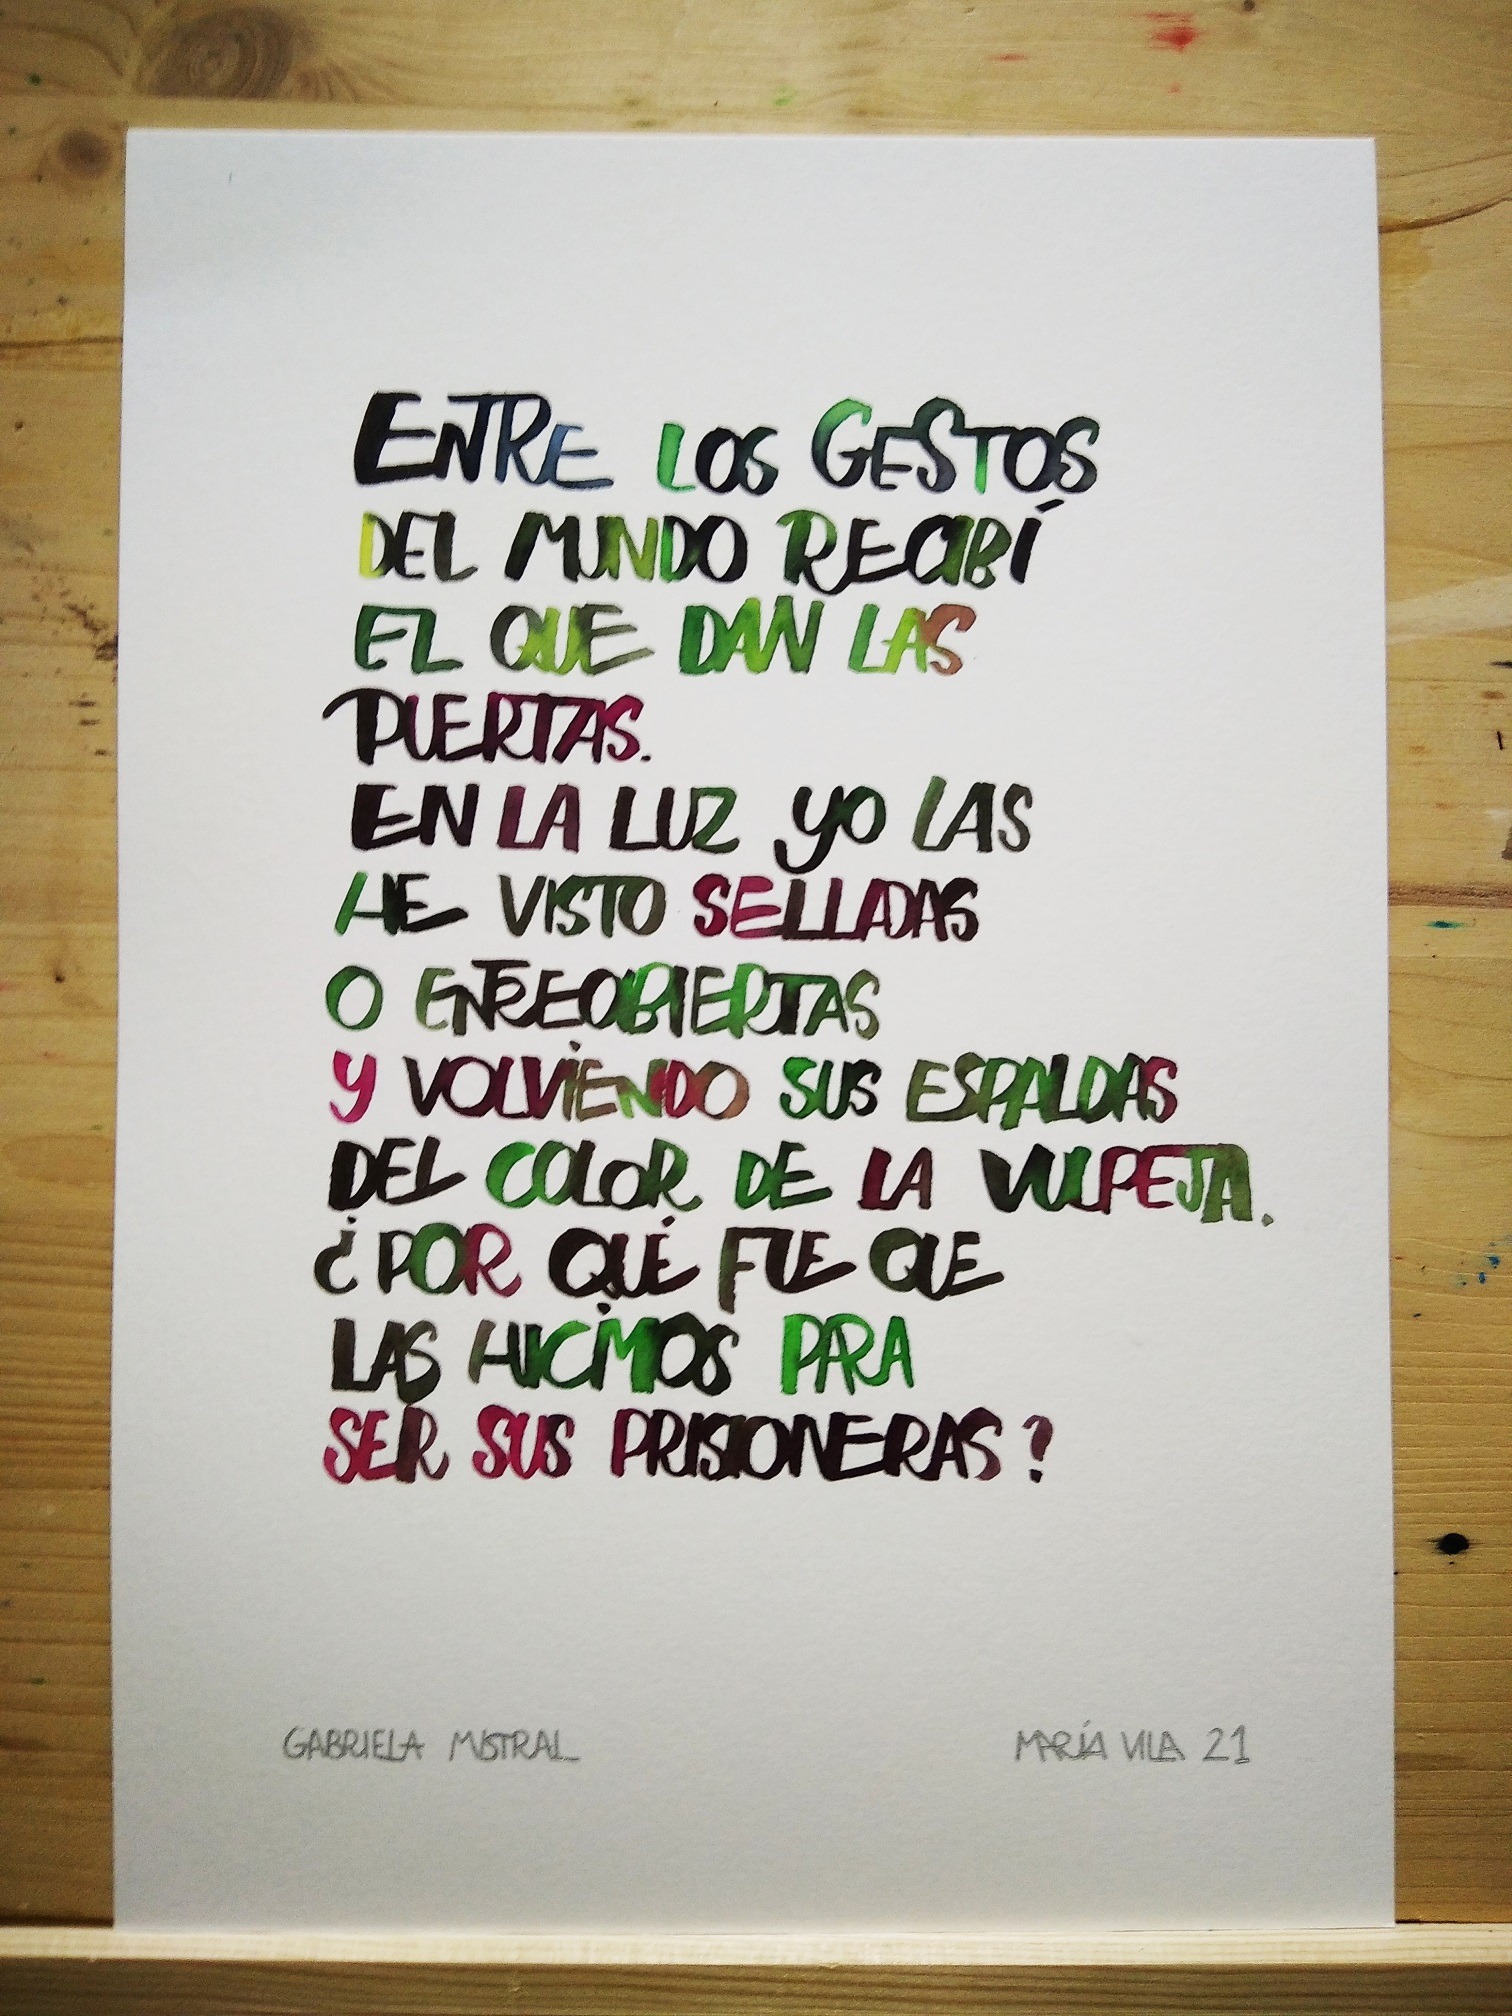 ENTRE LOS GESTOS
DEL MUNDO RECIBÍ
EL QUE DAN LAS
PUERTAS.
EN LA LUZ YO LAS
HE VISTO SELLADAS
O ENTREABIERTAS
Y VOLVIENDO SUS ESPALDAS
DEL COLOR DE LA VULPEJA.
¿POR QUÉ FUE QUE
LAS HICIMOS PARA
SER SUS PRISIONERAS?
GABRIELA MISTRAL
MARÍA VILA 21